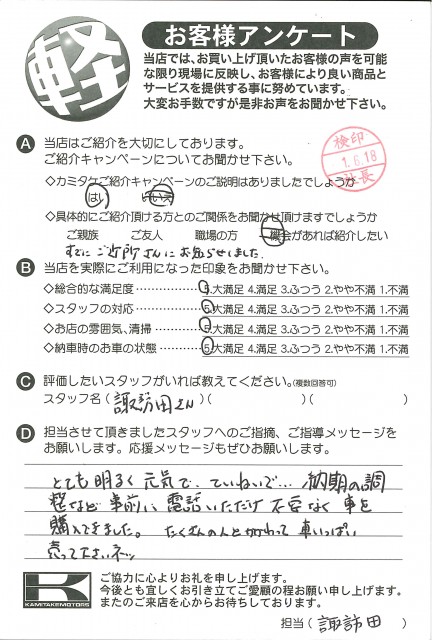 軽
お客様アンケート
当店では、お買い上げ頂いたお客様の声を可能
な限り現場に反映し、お客様により良い商品と
サービスを提供する事に努めています。
大変お手数ですが是非お声をお聞かせ下さい。
A 当店はご紹介を大切にしております。
ご紹介キャンペーンについてお聞かせ下さい。
検印
1.6.18
社長
◇カミタケご紹介キャンペーンのご説明はありましたでしょうか
はい いいえ
◇具体的にご紹介頂ける方とのご関係をお聞かせ頂けますでしょうか
ご親族 ご友人 職場の方 機会があれば紹介したい
すでに ご近所さんにお知らせしました
B 当店を実際にご利用になった印象をお聞かせ下さい。
◇総合的な満足度……………5.大満足 4.満足 3.ふつう 2.やや不満 1.不満
◇スタッフの対応……………5.大満足 4.満足 3.ふつう 2.やや不満 1.不満
◇お店の雰囲気、清掃………5.大満足 4.満足 3.ふつう 2.やや不満 1.不満
◇納車時のお車の状態………5.大満足 4.満足 3.ふつう 2.やや不満 1.不満
C 評価したいスタッフがいれば教えてください。(複数回答可)
スタッフ名(諏訪田さん)( )( )
D 担当させて頂きましたスタッフへのご指摘、ご指導メッセージを
お願いします。応援メッセージもぜひお願いします。
とても明るく元気で、ていねいで… 納期の調
整など事前に電話いただけ不安なく車を
購入できました。たくさんの人とかかわって車いっぱい
売って下さいネッ
K
KAMITAKE MOTORS
ご協力に心よりお礼を申し上げます。
今後とも宜しくお引き立てご愛顧の程お願い申し上げます。
またのご来店を心からお待ちしております。
担当(諏訪田)